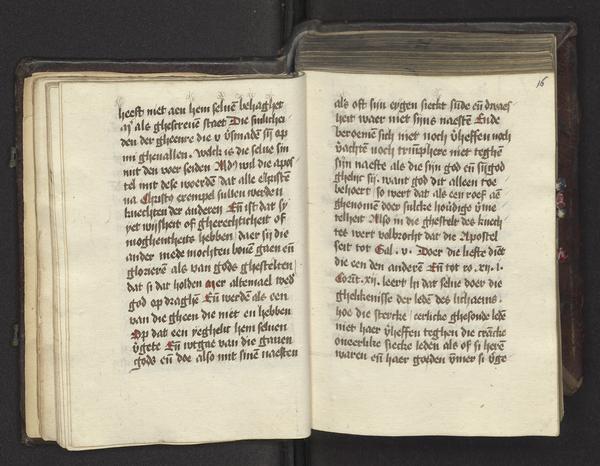 heeft niet aen hem seluē behaghet
als ghescreuē staet Die smlichei
den der gheenre die v v̄smadē sij op
mi gheuallen. welc is die selue sin
mit den voer seiden Mer wil die apos
tel mit dese woerdē dat alle cristēn
na Cristus exempel sullen werden
knechten der anderen Eñ ist dat sy
yet wijsheit of gherechticheit of
moghentheits hebben daer sij die
ander mede mochten bouē gaen eñ
glorierē als van gods ghestelten
dat si dat holden mer altemael wed
god op draghē Eñ werdē als een
van die gheen die niet en hebben
Op dat een yeghelic hem seluen
v̄gete Eñ van die gauen
gods eñ doe also mit sinē naesten
16
als oft sijn eygen siecht sūde eñ dwaes
heit waer niet sijns naestē Ende
beroemē sich niet noch v̄heffen noch
v̄achtē noch triūpheren niet teghē
sijn naeste als die sijn god eñ sij god
ghelijc sij. want god dit alleen toe
behoert so wert dat als een roef aē
ghenomē doer sulcke houdige v̄me
telheit Also in die ghestelt des knech
tes wert volbrocht dat die Apostel
seit tot Gal. v. Doer die liefte diēt
die een den anderē Eñ tot ro. xij. i.
Corīt. xij. leert hi dat selue doer die
ghelikenisse der ledē des lichaems.
hoe die stercke eerlicke ghesonde ledē
niet haer v̄heffen teghen die crācke
oneerlike siecke leden als of si herē
waren eñ haer goeden v̄mer si v̄ge